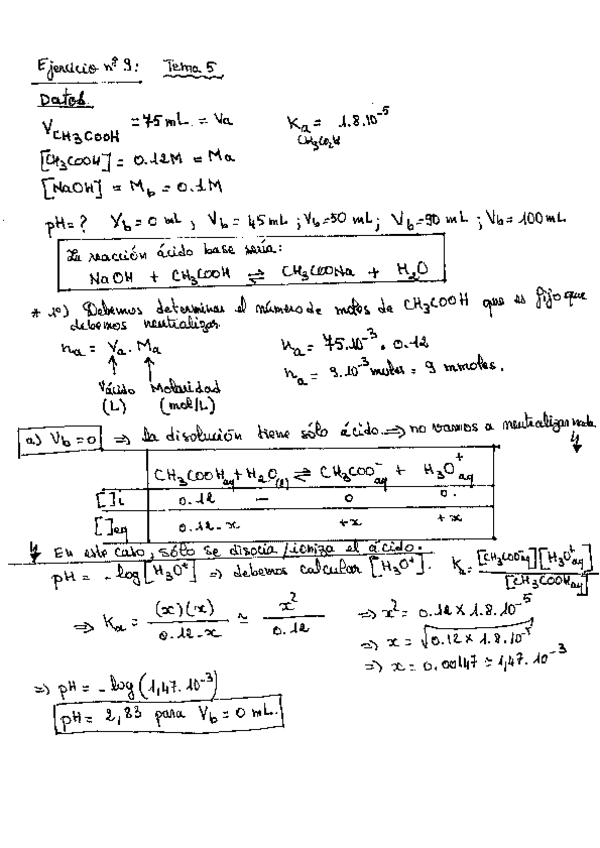 Ejercicio nº 9: Tema 5
Datos.
V CH3COOH = 75 mL = Va Ka CH3CO2H = 1.8.10⁻⁵
[CH3COOH] = 0.12M = Ma
[NaOH] = Mb = 0.1M
pH=? Vb = 0 mL, Vb = 45 mL; Vb=50 mL; Vb=90 mL; Vb= 100 mL
La reacción ácido base sería:
NaOH + CH3COOH ⇌ CH3COONa + H2O
* 1º) Debemos determinar el número de moles de CH3COOH que es fijo que
debemos neutralizar.
na = Va . Ma na = 75.10⁻³ . 0.12
na = 9.10⁻³ moles = 9 mmoles.
Vácido Molaridad
(L) (mol/L)
a) Vb = 0 ⇒ la disolución tiene sólo ácido ⇒ no vamos a neutralizar nada.
CH3COOH aq + H2O (l) ⇌ CH3COO⁻ aq + H3O⁺ aq
[ ]i 0.12 — 0 0.
[ ]eq 0.12-x +x +x
En este caso, sólo se disocia/ioniza el ácido.
pH = -log[H3O⁺] ⇒ debemos calcular [H3O⁺]. Ka = [CH3COO⁻aq][H3O⁺aq] / [CH3COOHaq]
⇒ Ka = (x)(x) / 0.12-x ≃ x² / 0.12 ⇒ x² = 0.12 x 1.8.10⁻⁵
⇒ x = √0.12 x 1.8.10⁻⁵
⇒ x = 0.00147 ≃ 1,47.10⁻³
⇒ pH = -log(1,47.10⁻³)
pH = 2,83 para Vb = 0 mL.